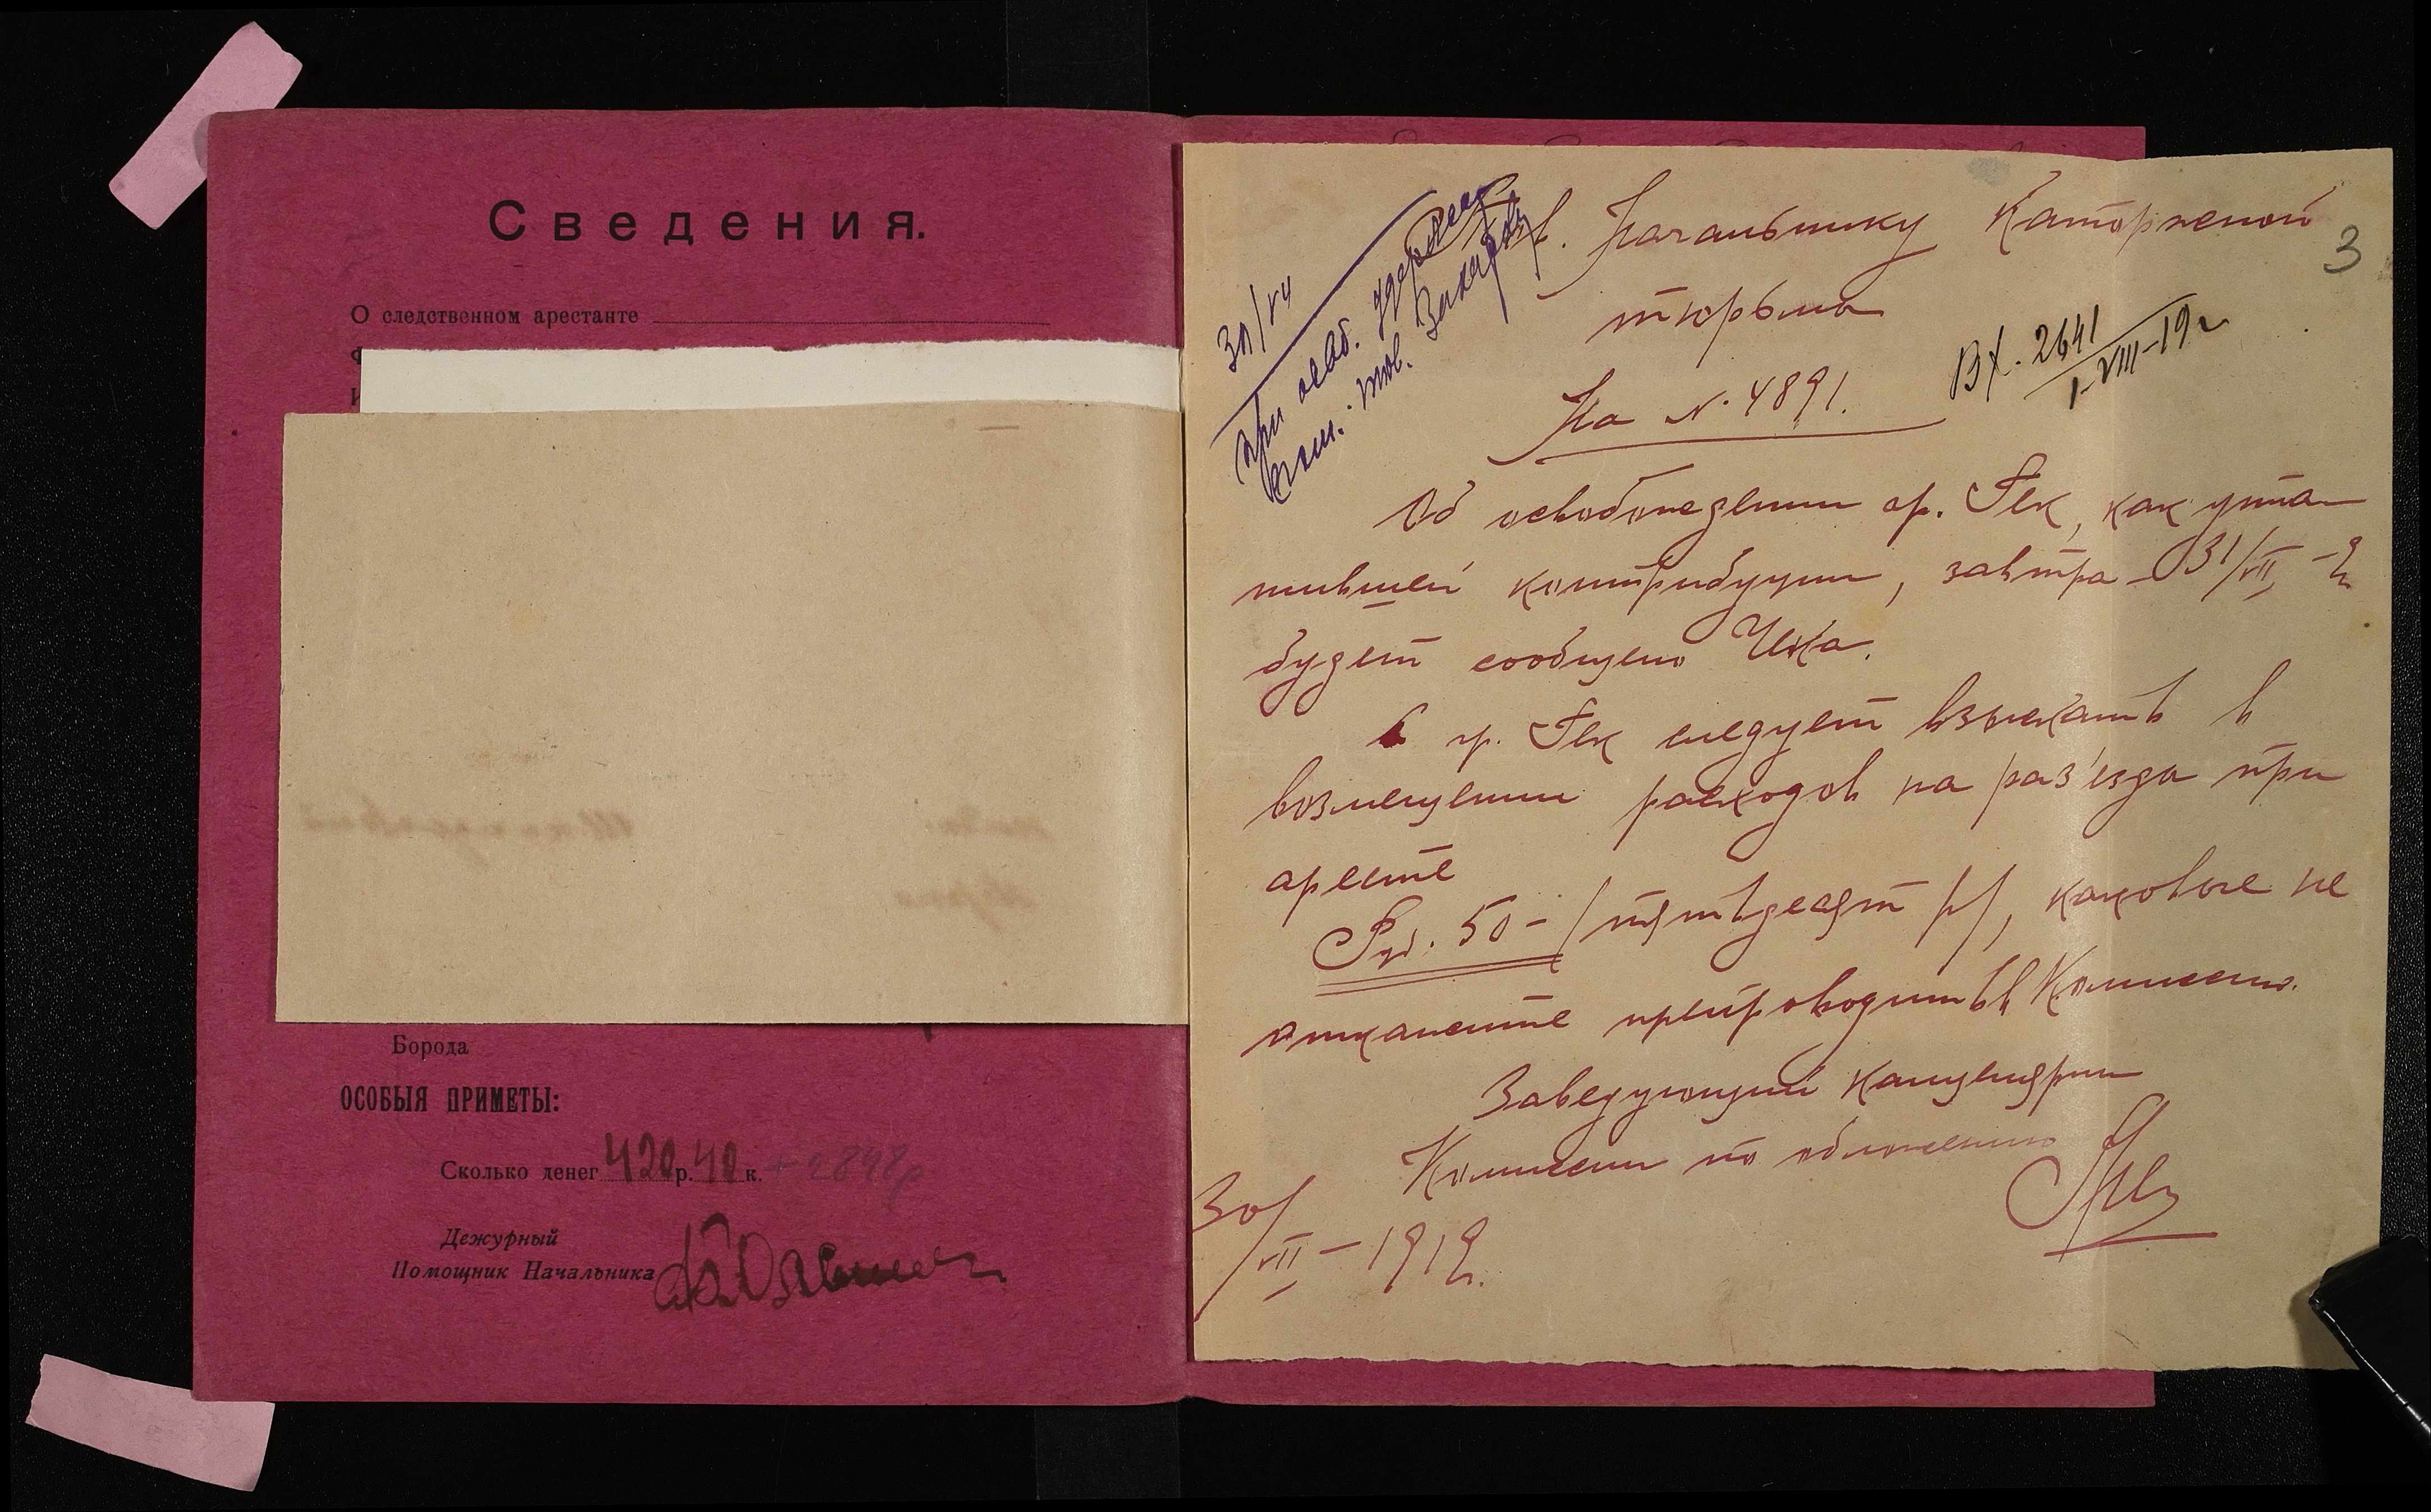 Сведения.
О следственном арестанте
Борода
ОСОБЫЯ ПРИМЕТЫ:
Сколько денег 420 р. 40 к. + 2898р
Дежурный
Помощник Начальника
3
30/VII
При освоб. удержать
тов.
Начальнику Каторжной
тюрьмы
Вх. 2641
1-VIII-19 г
На №. 4891.
Об освобождении гр. Гек, как упла
тившей контрибуции, завтра 31/VII
будет сообщено Чека.
С гр. Гек следует взыскать в
возмещении расходов на раз'езды при
аресте
Руб. 50 - /пятьдесят р/, каковые не
откажите препроводить в Комиссию.
Заведующий канцелярии
Комиссии по обложению
30/VII - 1919 г.